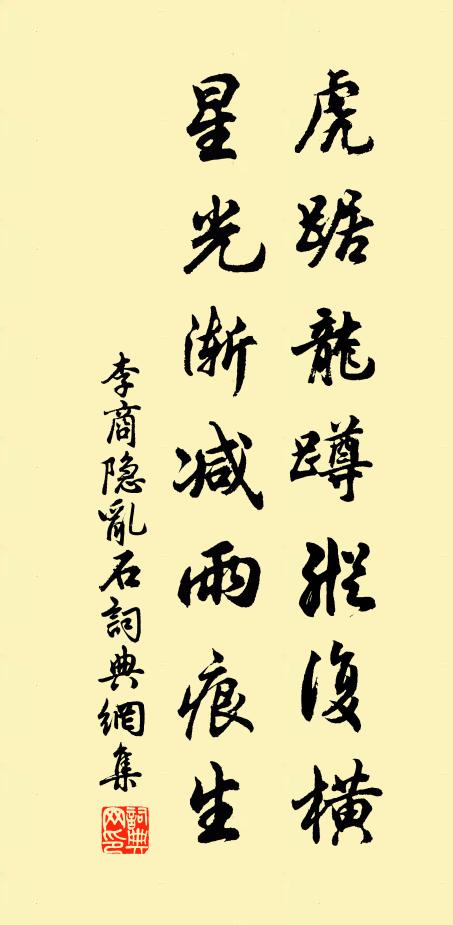 虎踞龍蹲縱復橫
星光漸減雨痕生
李商隐亂石詞典網集
詞典网印